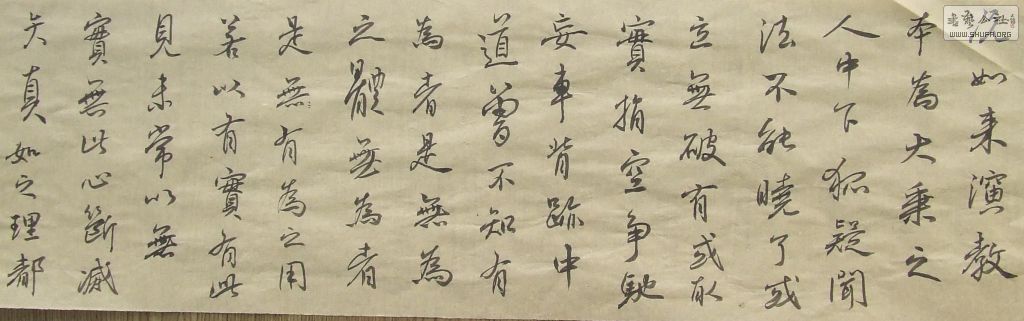 如来演教
本為大乘之
人中下狐疑聞
法不能曉了或
立無破有或取
實指空争馳
妄車背跡中
道曾不知有
為者是無為
之體無為者
是無有為之用
若以有實有此
見未常以無
實無此心斷滅
矣真如之理都
書藝公社
WWW.SHUFA.ORG